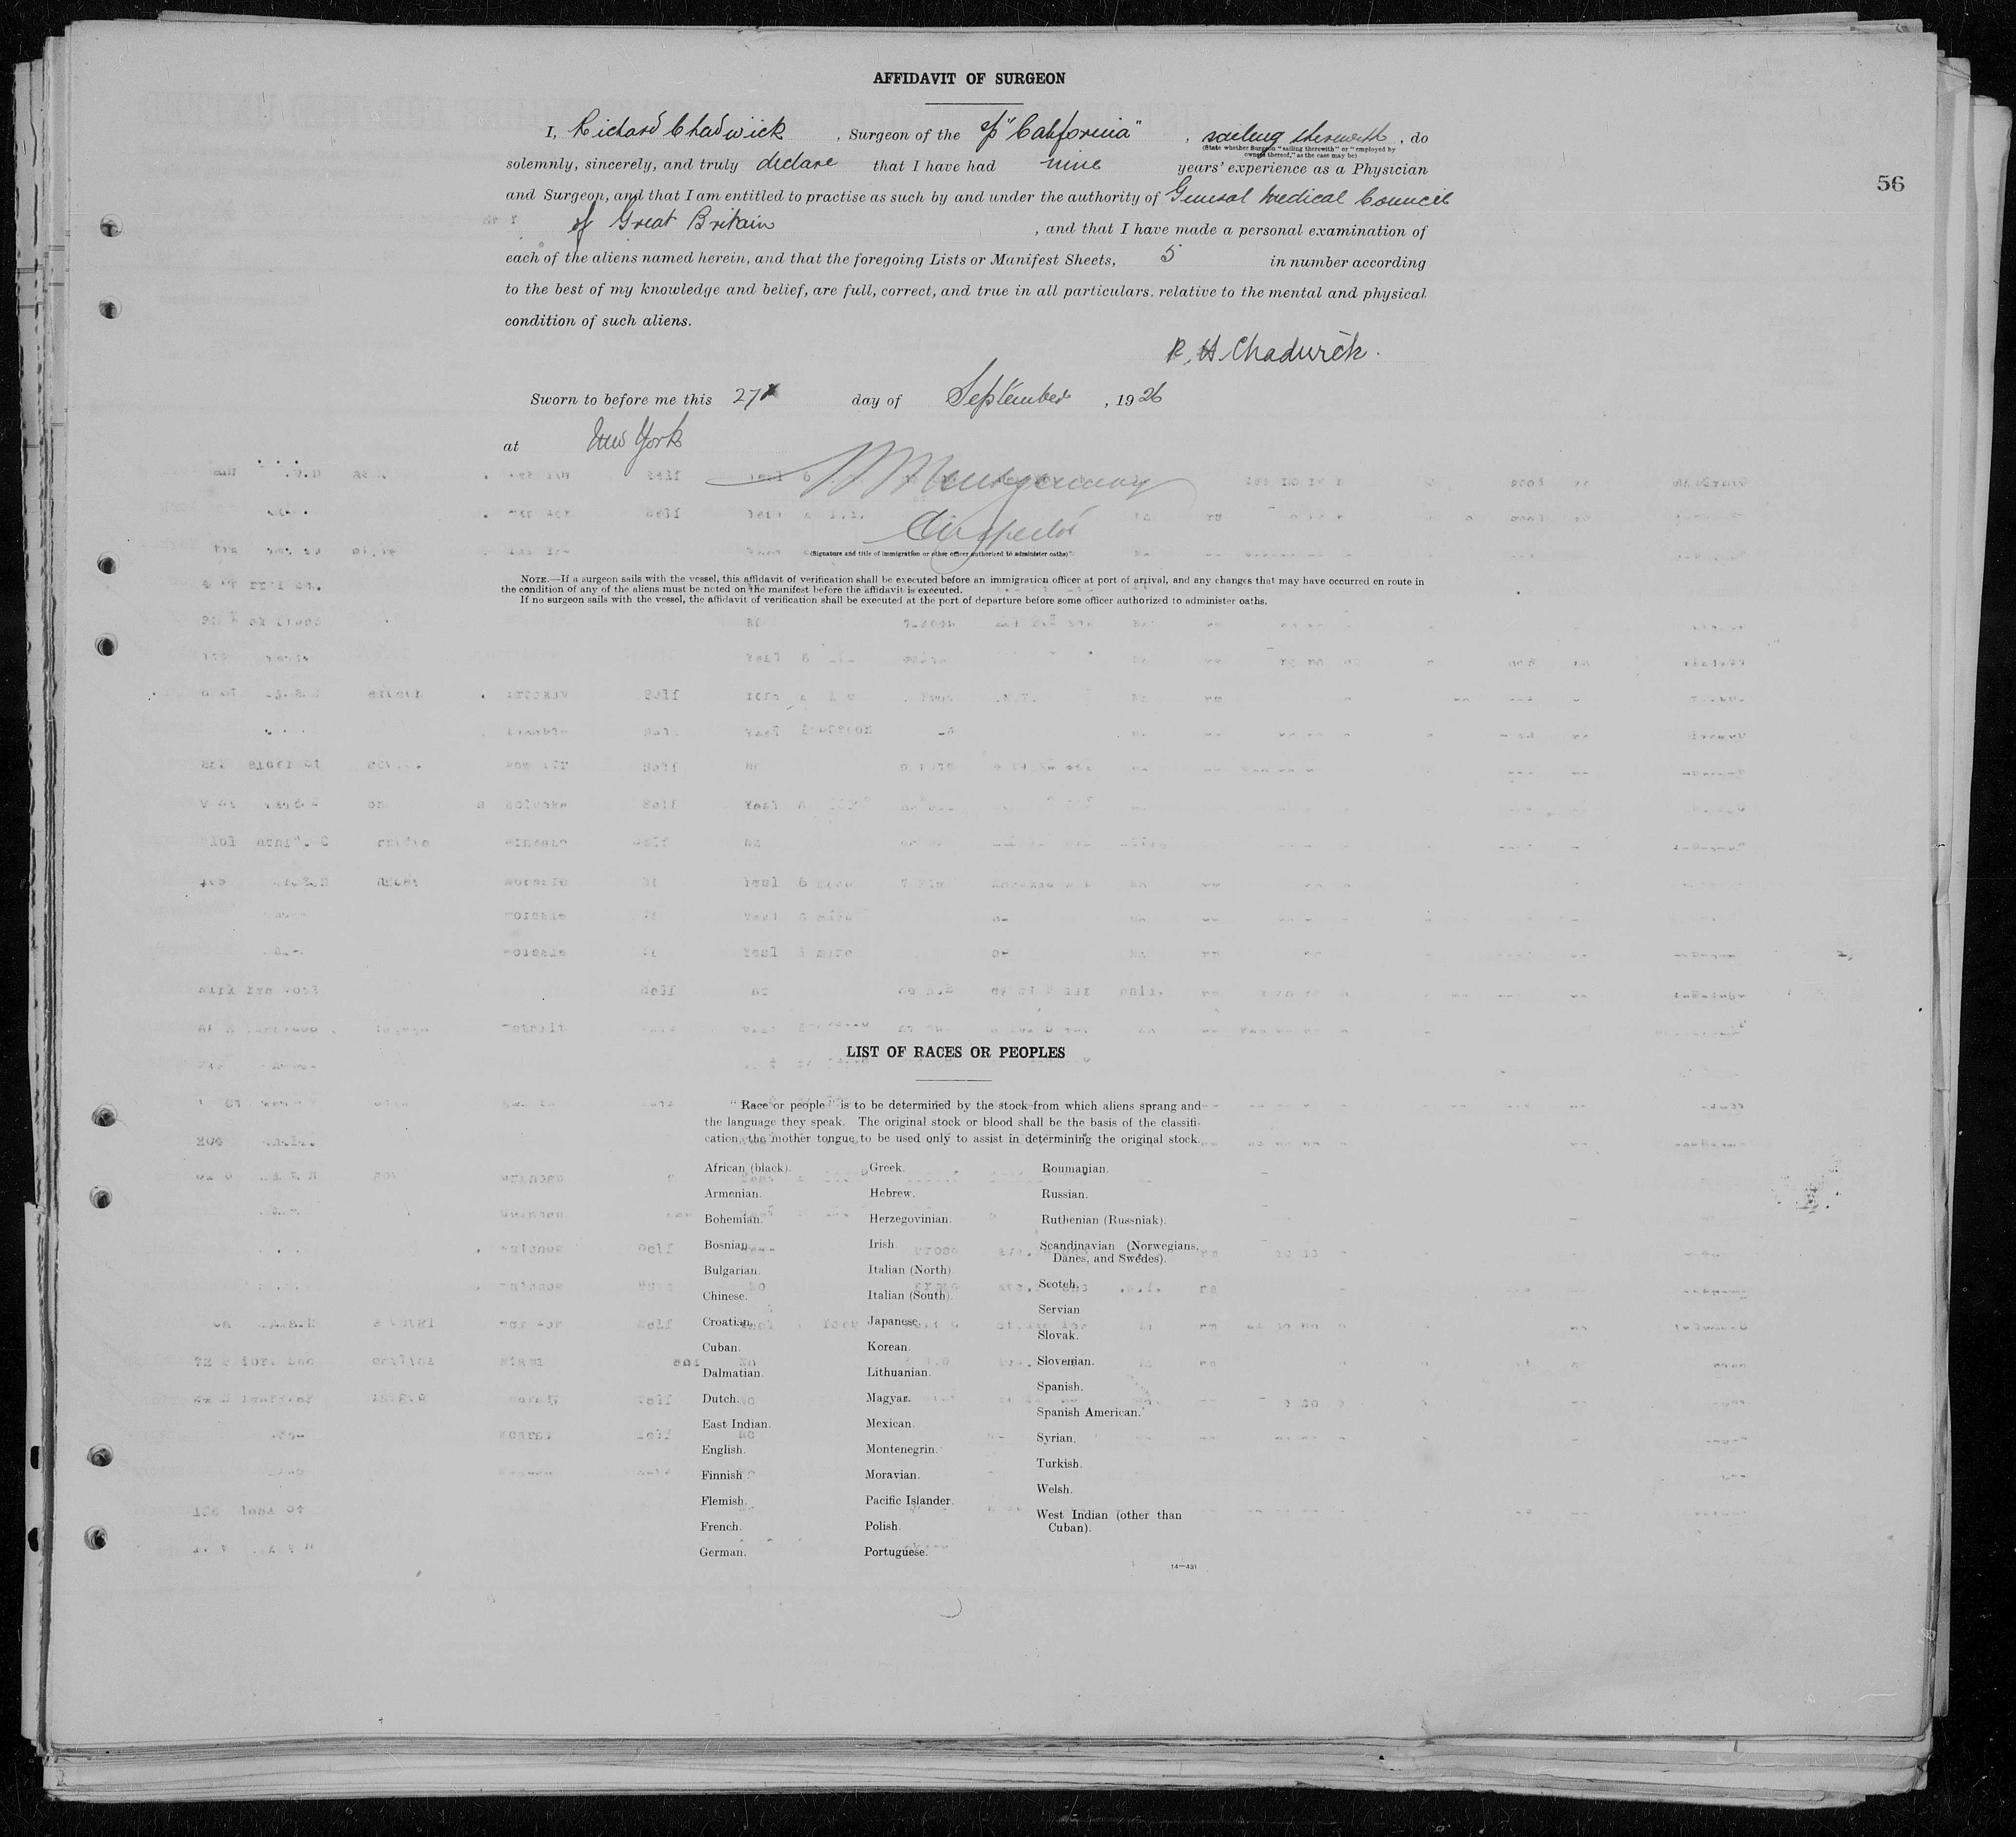 AFFIDAVIT OF SURGEON
I, Richard Chadwick, Surgeon of the S/S "California", sailing therewith, do
(State whether Surgeon "sailing therewith" or "employed by
owners thereof," as the case may be)
solemnly, sincerely, and truly declare that I have had nine years' experience as a Physician
56
and Surgeon, and that I am entitled to practise as such by and under the authority of General Medical Council
of Great Britain, and that I have made a personal examination of
each of the aliens named herein, and that the foregoing Lists or Manifest Sheets, 5 in number according
to the best of my knowledge and belief, are full, correct, and true in all particulars, relative to the mental and physical
condition of such aliens.
R. H. Chadwick.
Sworn to before me this 27 day of September, 1926
at New York
Montgomery
Inspector
(Signature and title of immigration or other officer authorized to administer oaths)
NOTE.—If a surgeon sails with the vessel, this affidavit of verification shall be executed before an immigration officer at port of arrival, and any changes that may have occurred en route in
the condition of any of the aliens must be noted on the manifest before the affidavit is executed.
If no surgeon sails with the vessel, the affidavit of verification shall be executed at the port of departure before some officer authorized to administer oaths.
LIST OF RACES OR PEOPLES
"Race or people" is to be determined by the stock from which aliens sprang and
the language they speak. The original stock or blood shall be the basis of the classifi-
cation, the mother tongue to be used only to assist in determining the original stock.
African (black).
Armenian.
Bohemian.
Bosnian.
Bulgarian.
Chinese.
Croatian.
Cuban.
Dalmatian.
Dutch.
East Indian.
English.
Finnish.
Flemish.
French.
German.
Greek.
Hebrew.
Herzegovinian.
Irish.
Italian (North).
Italian (South).
Japanese.
Korean.
Lithuanian.
Magyar.
Mexican.
Montenegrin.
Moravian.
Pacific Islander.
Polish.
Portuguese.
Roumanian.
Russian.
Ruthenian (Russniak).
Scandinavian (Norwegians,
Danes, and Swedes).
Scotch.
Servian
Slovak.
Slovenian.
Spanish.
Spanish American.
Syrian.
Turkish.
Welsh.
West Indian (other than
Cuban).
14—431